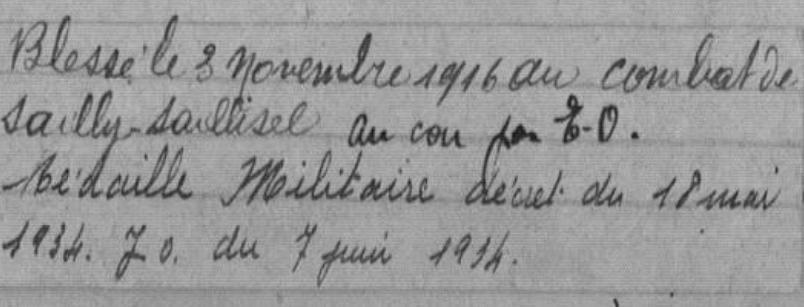 Blessé le 3 novembre 1916 au combat de
Sailly-Saillisel au cou par E-O.
Médaille Militaire décret du 18 mai
1934. J.O. du 7 juin 1934.